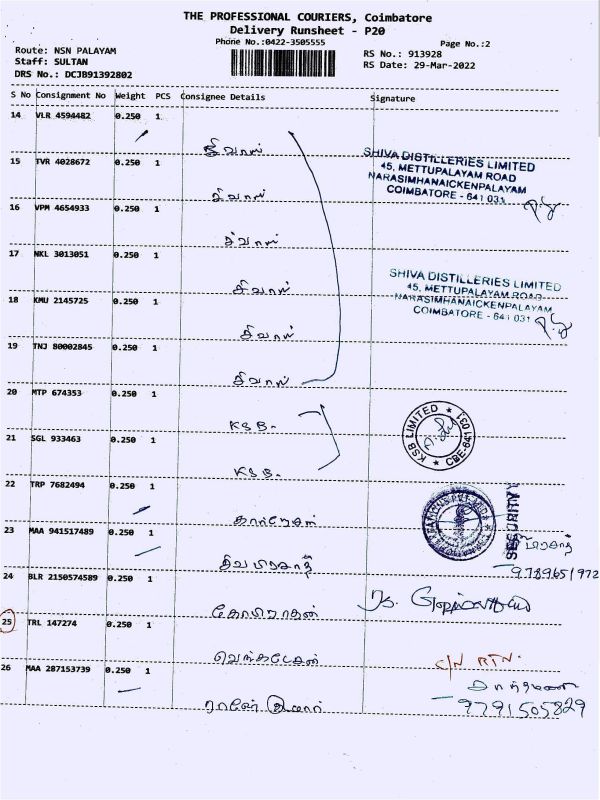 THE PROFESSIONAL COURIERS, Coimbatore
Delivery Runsheet - P20
Phone No.:0422-3505555
Page No.:2
Route: NSN PALAYAM
RS No.: 913928
Staff: SULTAN
RS Date: 29-Mar-2022
DRS No.: DCJB91392802
S No Consignment No Weight PCS Consignee Details Signature
14 VLR 4594482 0.250 1
சிவாஸ்
SHIVA DISTILLERIES LIMITED
45, METTUPALAYAM ROAD
NARASIMHANAICKENPALAYAM
COIMBATORE - 641 031
15 TVR 4028672 0.250 1
சிவாஸ்
16 VPM 4654933 0.250 1
சிவாஸ்
17 NKL 3013051 0.250 1
சிவாஸ்
SHIVA DISTILLERIES LIMITED
45, METTUPALAYAM ROAD
NARASIMHANAICKENPALAYAM
COIMBATORE - 641 031
18 KMU 2145725 0.250 1
சிவாஸ்
19 TNJ 80002845 0.250 1
சிவாஸ்
20 MTP 674353 0.250 1
KSB.
KSB LIMITED ★ CBE-641 031 ★
21 SGL 933463 0.250 1
KSB.
22 TRP 7682494 0.250 1
SECURITY
23 MAA 941517489 0.250 1
சிவ பிரகாத்
24 BLR 2150574589 0.250 1
25 TRL 147274 0.250 1
வெங்கடேசன்
C/N RTN.
26 MAA 287153739 0.250 1
ராஜேஸ் குமார்
9791505829